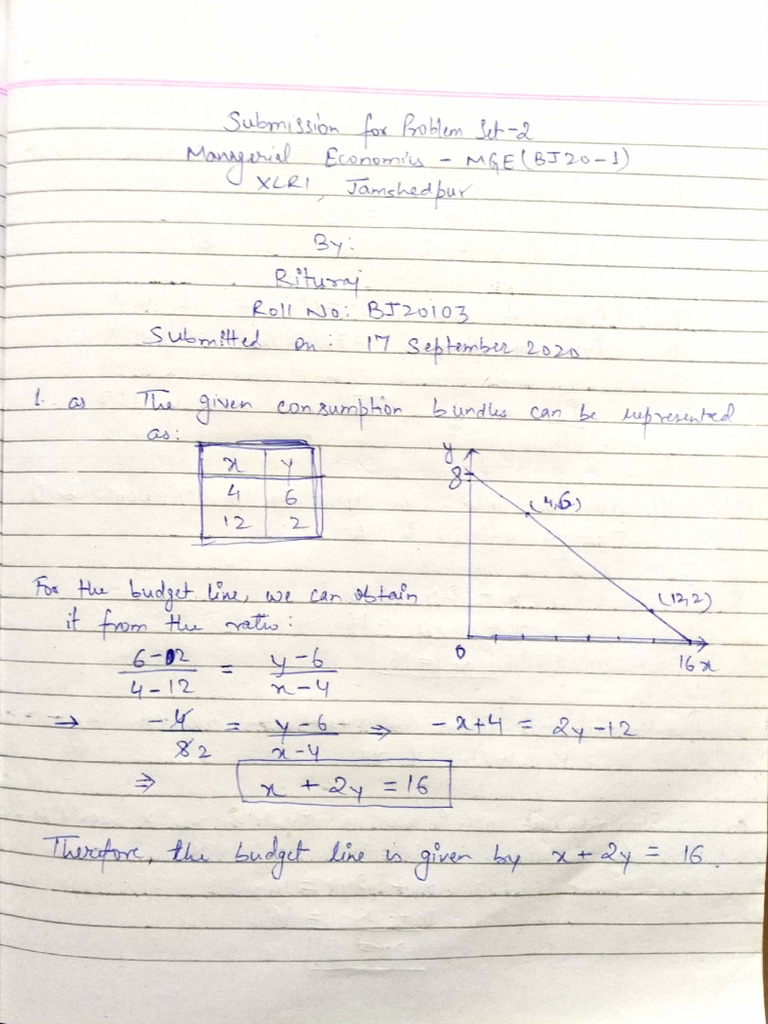 Submission for Problem Set-2
Managerial Economics - MGE(BJ20-1)
XLRI, Jamshedpur
By:
Rituraj
Roll No: BJ20103
Submitted on: 17 September 2020
1. a) The given consumption bundles can be represented
as:
x y
4 6
12 2
y
8
(4,6)
(12,2)
0
16 x
For the budget line, we can obtain
it from the ratio:
6-2 / 4-12 = y-6 / x-4
⇒ -4 / 82 = y-6 / x-4 ⇒ -x+4 = 2y-12
⇒ x + 2y = 16
Therefore, the budget line is given by x + 2y = 16.